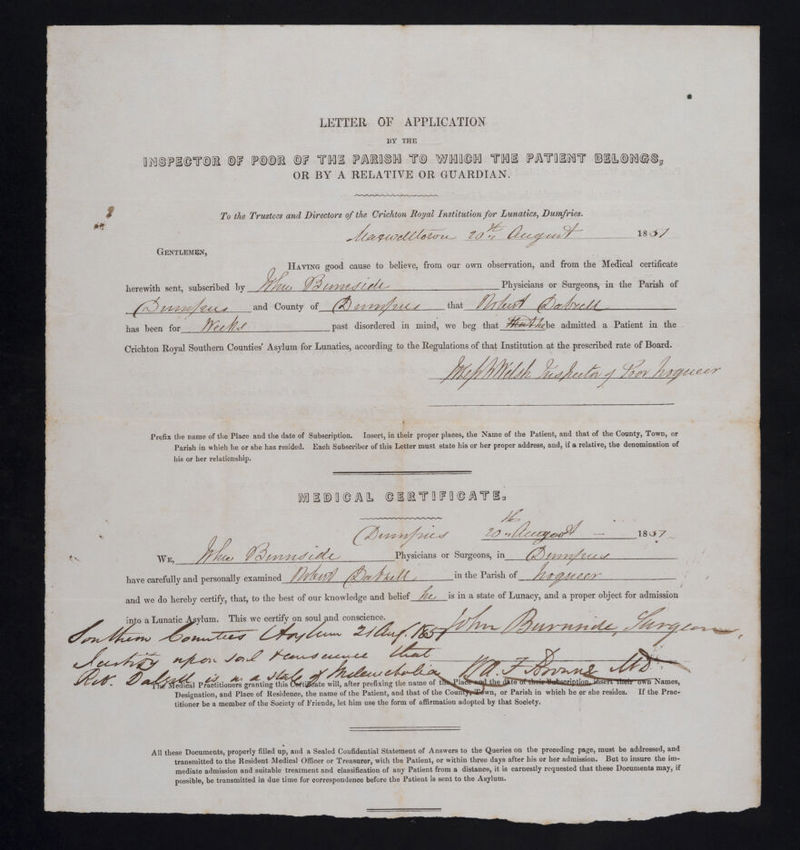 LETTER OF APPLICATION
BY THE
INSPECTOR OF POOR OF THE PARISH TO WHICH THE PATIENT BELONGS,
OR BY A RELATIVE OR GUARDIAN.
To the Trustees and Directors of the Crichton Royal Institution for Lunatics, Dumfries.
Maxwelltown 20th August 1857
GENTLEMEN,
HAVING good cause to believe, from our own observation, and from the Medical certificate
herewith sent, subscribed by John Burnside Physicians or Surgeons, in the Parish of
Dumfries and County of Dumfries that Robert Dalzell
has been for Weeks past disordered in mind, we beg that be admitted a Patient in the
Crichton Royal Southern Counties' Asylum for Lunatics, according to the Regulations of that Institution at the prescribed rate of Board.
Welsh Inspector of Poor Troqueer
Prefix the name of the Place and the date of Subscription. Insert, in their proper places, the Name of the Patient, and that of the County, Town, or
Parish in which he or she has resided. Each Subscriber of this Letter must state his or her proper address, and, if a relative, the denomination of
his or her relationship.
MEDICAL CERTIFICATE.
Dumfries 20th August 1857
WE, John Burnside Physicians or Surgeons, in Dumfries
have carefully and personally examined Robert Dalzell in the Parish of Troqueer
and we do hereby certify, that, to the best of our knowledge and belief he is in a state of Lunacy, and a proper object for admission
into a Lunatic Asylum. This we certify on soul and conscience.
John Burnside, Surgeon,
Southern Counties Asylum 21 Aug. 1857
I certify upon soul & conscience that
Rob. Dalzell is in a state of Melancholia W. A. F. Browne MD.
The Medical Practitioners granting this Certificate will, after prefixing the name of the Place and the date of their Subscription, insert their own Names,
Designation, and Place of Residence, the name of the Patient, and that of the County, Town, or Parish in which he or she resides. If the Prac-
titioner be a member of the Society of Friends, let him use the form of affirmation adopted by that Society.
All these Documents, properly filled up, and a Sealed Confidential Statement of Answers to the Queries on the preceding page, must be addressed, and
transmitted to the Resident Medical Officer or Treasurer, with the Patient, or within three days after his or her admission. But to insure the im-
mediate admission and suitable treatment and classification of any Patient from a distance, it is earnestly requested that these Documents may, if
possible, be transmitted in due time for correspondence before the Patient is sent to the Asylum.